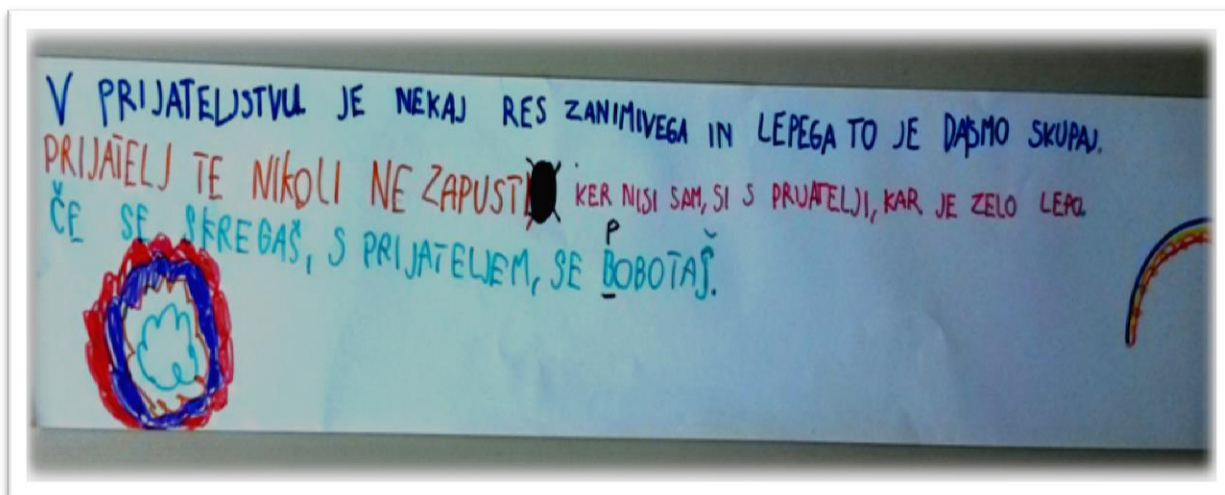 V PRIJATELJSTVU JE NEKAJ RES ZANIMIVEGA IN LEPEGA TO JE DA SMO SKUPAJ.
PRIJATELJ TE NIKOLI NE ZAPUSTI. KER NISI SAM, SI S PRIJATELJI, KAR JE ZELO LEPO.
P
ČE SE SKREGAŠ, S PRIJATELJEM, SE BOBOTAŠ.